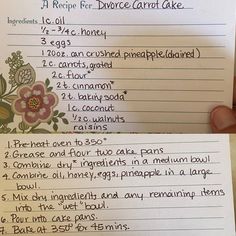 A Recipe For Divorce Carrot Cake
Ingredients 1c. oil
1/2 - 3/4 c. honey
3 eggs
1 20oz. can crushed pineapple (drained)
2 c. carrots, grated
2 c. flour*
2 t. cinnamon*
2 t. baking soda*
1 c. coconut
1/2 c. walnuts
raisins
1. Pre-heat oven to 350°
2. Grease and flour two cake pans
3. Combine dry* ingredients in a medium bowl.
4. Combine oil, honey, eggs, pineapple in a large
bowl.
5. Mix dry ingredients and any remaining items
into the "wet" bowl.
6. Pour into cake pans.
7. Bake at 350° for 45 mins.